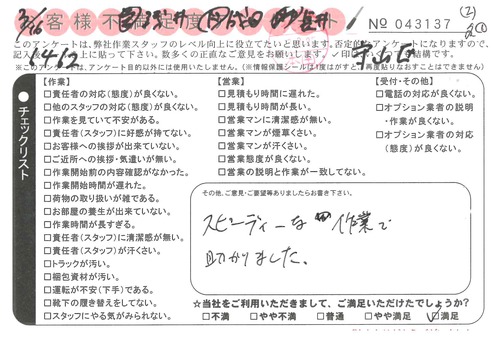 お客様不満足度
No 043137
このアンケートは、弊社作業スタッフのレベル向上に役立てたいと思います。否定的なアンケートになりますので、
に貼って下さい。数多くの正直なご意見をお願いします。
※このアンケートは、アンケート目的以外には使用いたしません。(※情報保護シールは1度はがすと、再度貼りなおすことはできません)
チェックリスト
【作業】
□責任者の対応(態度)が良くない。
□他のスタッフの対応(態度)が良くない。
□作業を見ていて不安がある。
□責任者(スタッフ)に好感が持てない。
□お客様への挨拶が出来ていない。
□ご近所への挨拶・気遣いが無い。
□作業開始前の内容確認がなかった。
□作業開始時間が遅れた。
□荷物の取り扱いが雑である。
□お部屋の養生が出来ていない。
□作業時間が長すぎる。
□責任者(スタッフ)に清潔感が無い。
□責任者(スタッフ)が汗くさい。
□トラックが汚い。
□梱包資材が汚い。
□運転が不安(下手)である。
□靴下の履き替えをしてない。
□スタッフにやる気がみられない。
【営業】
□見積もり時間に遅れた。
□見積もり時間が長い。
□営業マンに清潔感が無い。
□営業マンが煙草くさい。
□営業マンが汗くさい。
□営業態度が良くない。
□営業の説明と作業が一致してない。
【受付・その他】
□電話の対応が良くない。
□オプション業者の説明
・作業が良くない。
□オプション業者の対応
(態度)が良くない。
その他、ご意見・ご要望等ありましたらお書き下さい。
スピーディーな作業で
助かりました。
☆当社をご利用いただきまして、ご満足いただけたでしょうか?
□不満 □やや不満 □普通 □やや満足 ☑満足